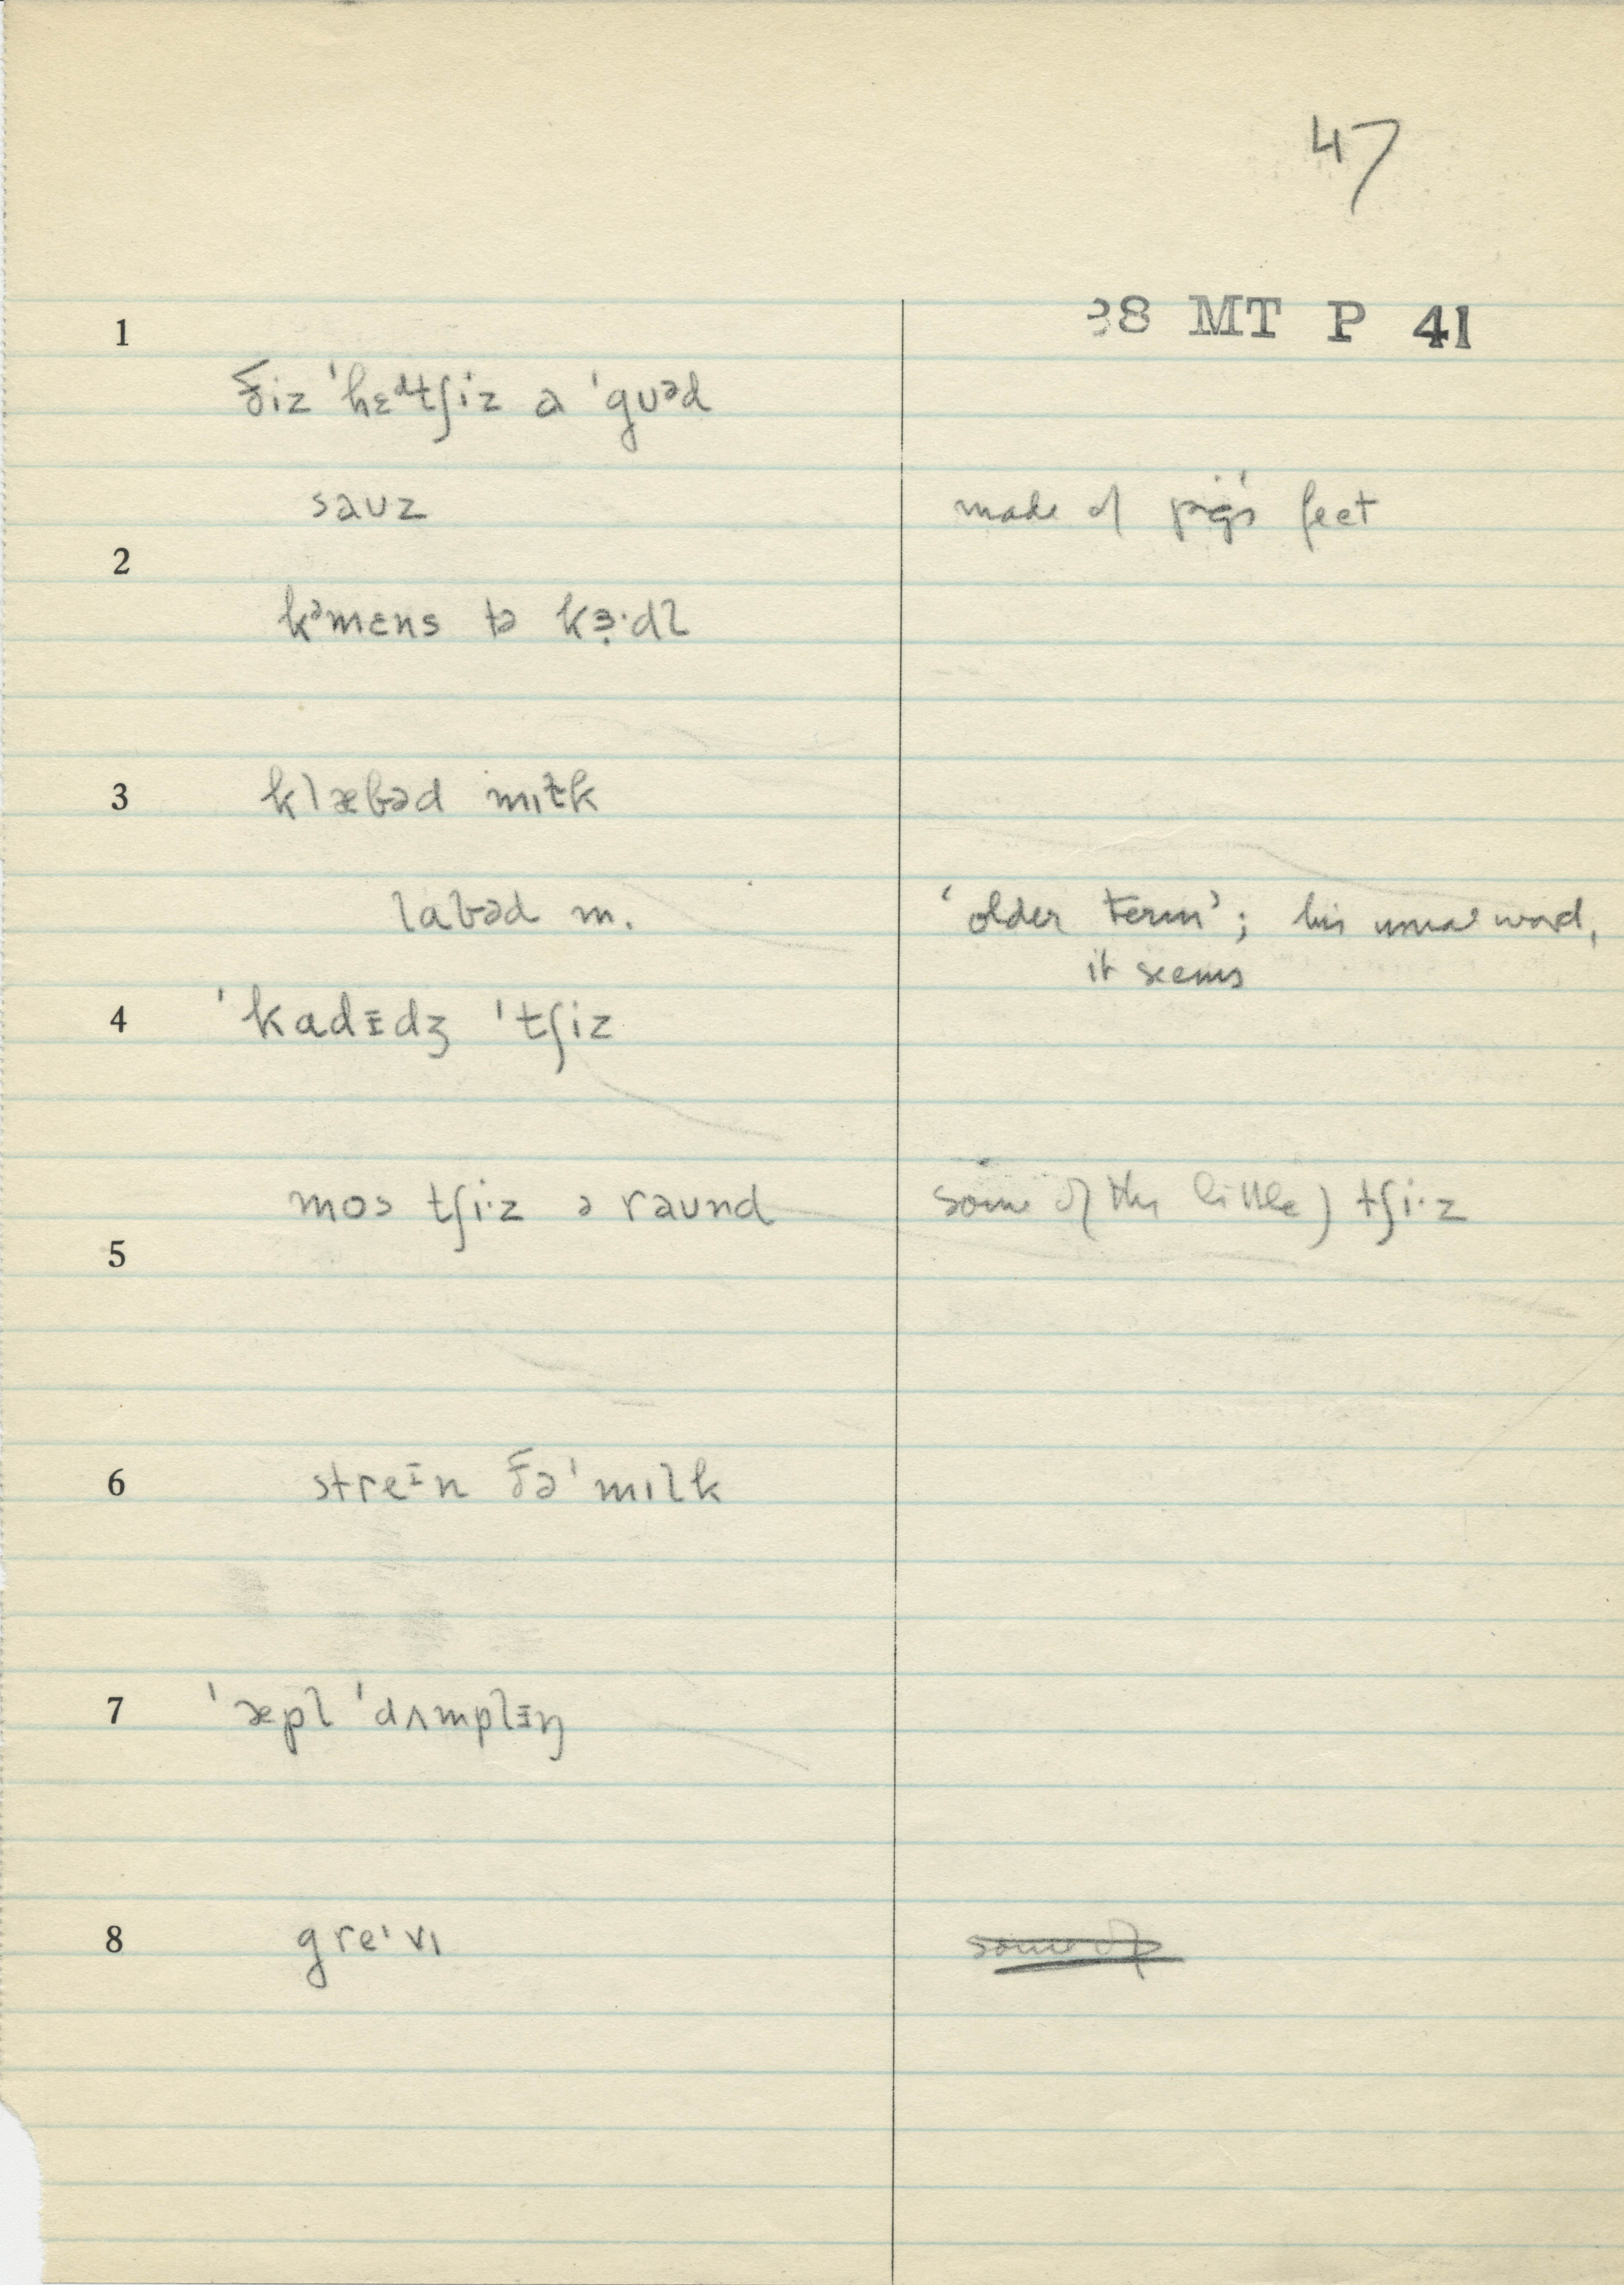 47
38 MT P 41
1
ðiz ˈhɛᵈtʃiz ə ˈgʊᵊd
saʊz made of pig's feet
2
kᵊmɛns tə kɜ̣·dl
3 klæbəd mɪɫk
labəd m. 'older term'; his usual word,
it seems
4 ˈkadɪ̵dʒ ˈtʃiz
mos tʃi·z ə raʊnd some of the little) tʃi·z
5
6 streɪ̵n ðəˈmɪlk
7 ˈæpl ˈdʌmplɪ̵ŋ
8 greˈvɪ some of